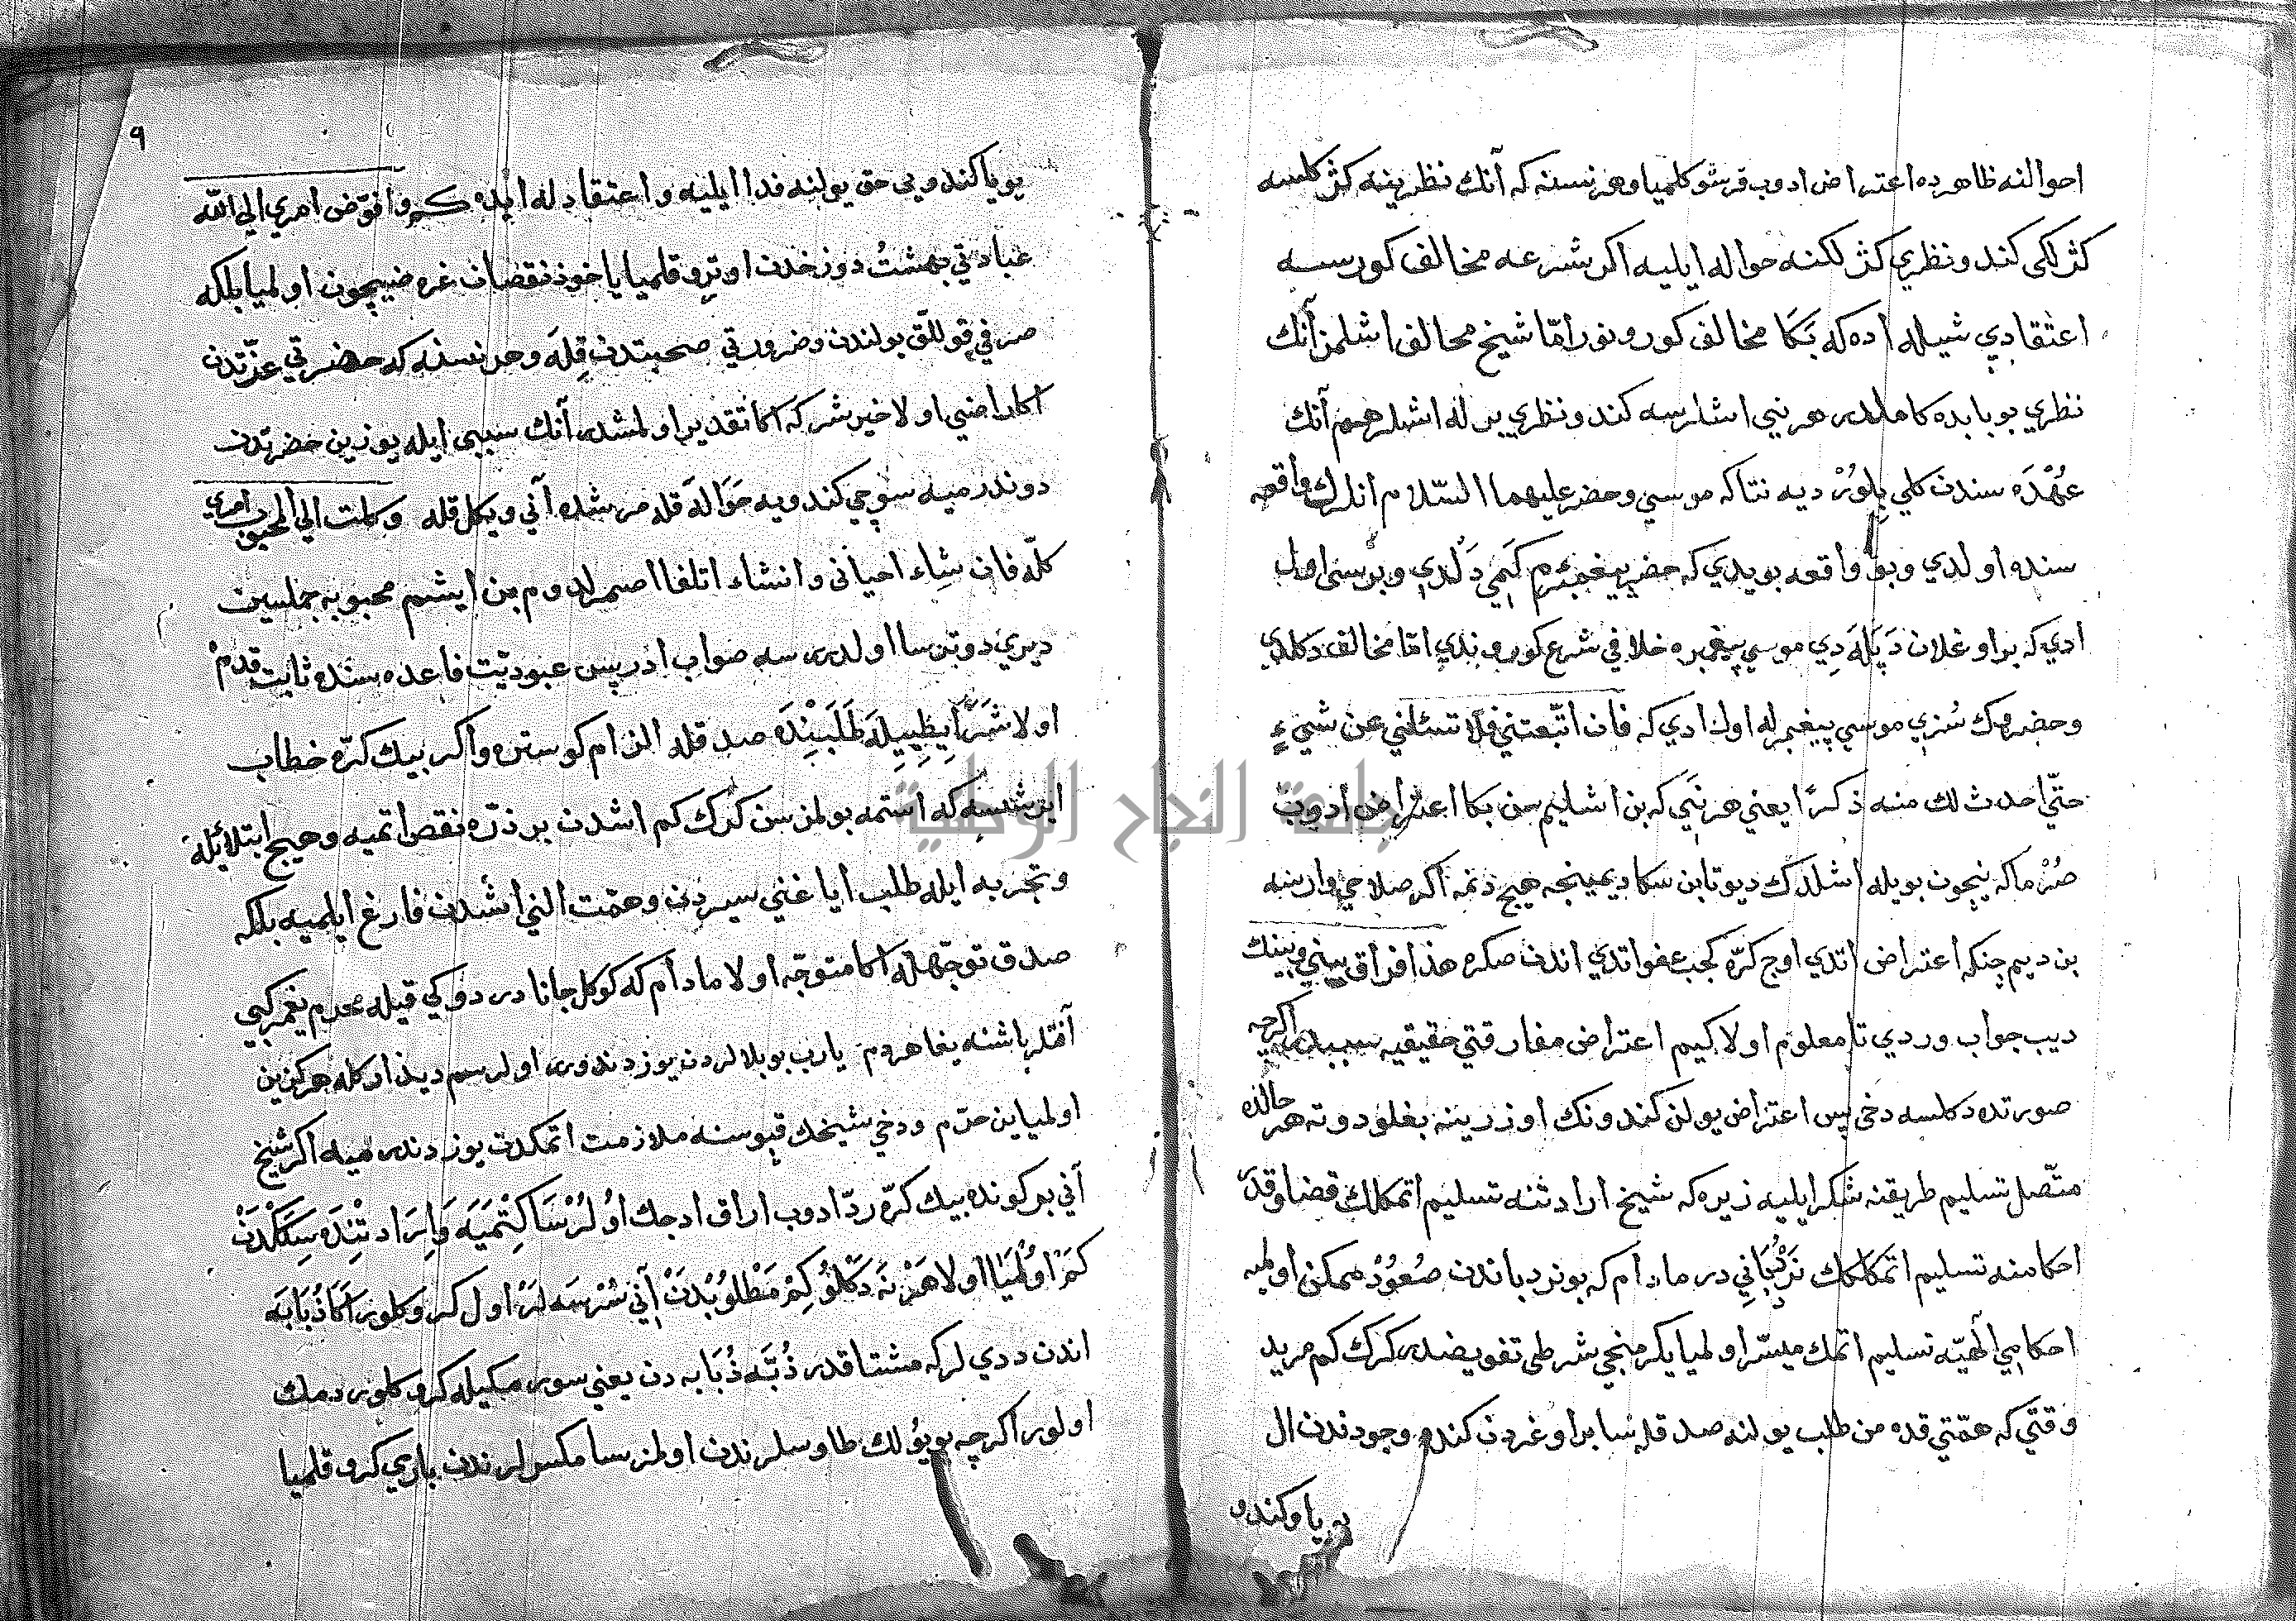 احوالنه ظاهرده اعتراض ادوب قرشو كلميا وهر نسنه كه آنك نظرينه كژ كلسه
كژلكى كندو نظري كژلكنه حواله ايليه اكر شرعه مخالف كورسه
اعتقادي شيله اده كه بَكَا مخالف كورونور امّا شيخ مخالف اشلمز آنك
نظري بو بابده كاملدر هر نيي اشلرسه كندو نظري يرله اشلر هم آنك
عُهْدَه سندن كلي بِلورْ ديه نتاكه موسي وخضر عليهما السّلام انلرك واقعه
سنده اولدي وبو واقعه بويدي كه خضر پيغمبرم كَمِي دَلدي وبرسي اول
ادي كه بر اوغلان دَپَلَه دِي موسي پيغمبره خلافي شرع كوروندي امّا مخالف دكلدي
وخضرك سُزي موسي پيغمبرله اول ادي كه فان اتّبعتني فلا تسئلني عن شيءٍ
حتّي احدث لك منه ذكرًا يعني هر نيي كه بن اشليم سن بكا اعتراض ادوب
صُرْما كه نيچون بويله اشلدك ديو تا بن سكا ديمينجه هيچ دنمه اكر صلاحي وارسه
بن ديم چنكه اعتراض اتدي اوچ كرّه كچب عفو اتدي اندن صكره هذا فراق بيني وبينك
ديب جواب وردي تا معلوم اولا كيم اعتراض مفارقتي حقيقيه سببدر اكرچه
صورتده دكلسه دخي پس اعتراض يولن كندونك اوزرينه بغلو دوته هر حالده
متّصل تسليم طريقنه شكر ايليه زيره كه شيخ ارادتنه تسليم اتمكلك قضا وقدر
احكامنه تسليم اتمكلكك نَرْدُبَانِي در مادام كه بو نردباندن صُعُودْ ممكن اولميه
احكامي الٓهيّه تسليم اتمك ميسّر اولميا يكرمنجي شرطي تفويضدر كرك كم مريد
وقتي كه همّتي قدمن طلب يولنه صدقله نسا بر اوغردن كندو وجودندن ال
يويا وكندو
٩
يويا كندويي حق يولنه فدا ايليه واعتقادله ايده كم وافوّض امري الي اللّه
عبادتي بهشتُ دوزخدن اوترو قلميا يا خوذ نقصان غره ضيچون اولميا بلكه
صرفي قوللّق يولندن وضرورتي صحبتدن قِلَه وهر نسنه كه حضرتي عزّتدن
اكا راضي اولا خير شر كه اكا تقدير اولمشدر آنك سببي ايله يوزين حضرتدن
دوندرميه سوچي كندويه حَوَالَه قله مرشده آني وكيل قله وكلت الي المحبوب امري
كلّه فان شاء احياني وان شاء اتلفا اصمرلدوم بن ايشم محبوبه جملسين
ديري دوتر سا اولدرر سه صواب ادر پس عبوديّت قاعده سنده ثابت قدم
اولا شَرَّ ايِظِيِيلَه طَلَبِنْدَه صدقله الن ام كوستره واكر بيك كرّه خطاب
ايرشسه كه استمه بولمز سن كرك كم اشدن بر ذرّه نقص اتميه وهيچ ابتلائله
وتجربه ايله طلب اياغني سيردن وهمّت النى اشدن فارغ ايلميه بلكه
صدق توجّهله اكا متوجّه اولا مادام كه كوكل جانا در دوكي قيله محرم يغمركبي
آفتلر باشنه يغاهردم يارب بو بلالردن يوز دندورر اولرسم ديذارکله هركزين
اولميا ين حرّم ودخي شيخك قپوسنه ملازمت اتمكدن يوز دندرميه اكر شيخ
آني بر كونده بيك كرّه ردّ ادوب اراق ادجك اوُلُرْسَا كِتْمَيَه وَاِرَادتْنِدَه سِكَكْدَنْ
كمَرْ اوُلْمَيَا اولا هَرْ نَه دَكْلوُ كِمْ مَطْلوُبُدَنْ آنِي سُرْسَه لَرْ اول كرو كلور اكا ذُبَابَه
اندن ددي لر كه مشتاقدر ذُبَّه ذُبَابه دن يعني سور مكيله كرو كلور دمك
اولور اكرچه بويوُلك طاوسلرندن اولمز سا مكس لرندن باري كرو قلميا